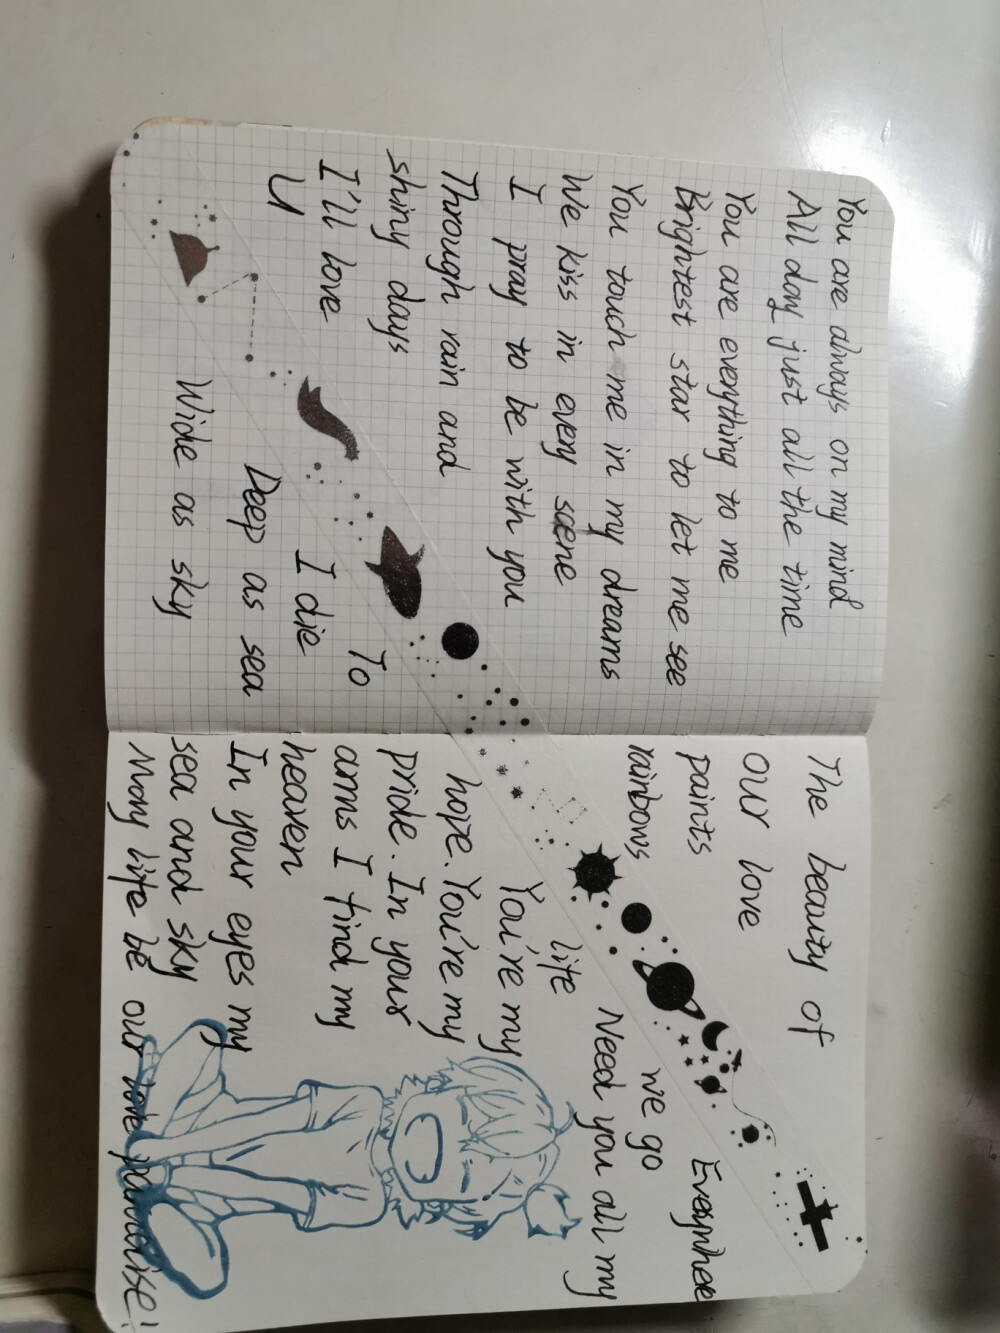 You are always on my mind
All day just all the time
You are everything to me
Brightest star to let me see
You touch me in my dreams
We kiss in every scene
I pray to be with you
Through rain and
shiny days
I'll love
U
To
I die
Deep as sea
Wide as sky
The beauty of
our love
paints
rainbows
Everywhee
we go
Need you all my
life
You're my
hope. You're my
pride. In your
arms I find my
heaven
In your eyes my
sea and sky
May life be our love paradise!